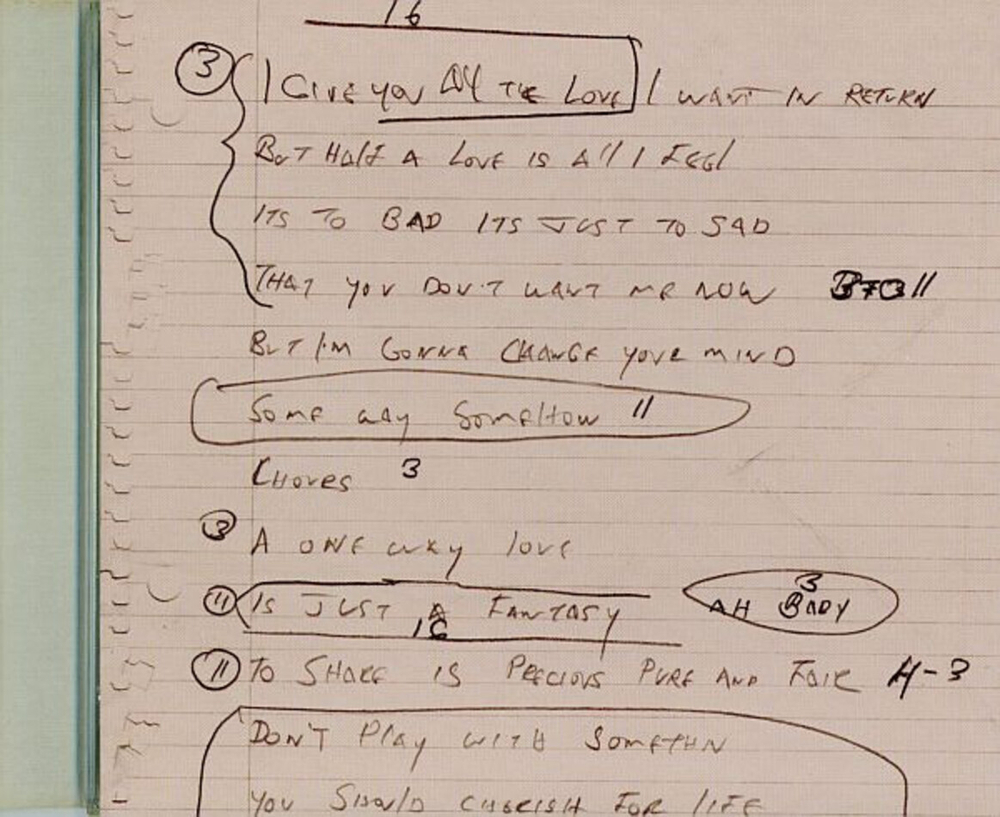 16
3 I GIVE YOU All THE LOVE I WANT IN RETURN
BUT HAlF A LOVE IS All I FEEl
ITS TO BAD ITS JUST TO SAD
THAT YOU DON'T WANT ME NOW
BUT I'M GONNA CHANGE YOUR MIND
SOME WAY SOMEHOW 11
CHORES 3
3 A ONE WAY lOVE
11 IS JUST A FANTASY 3
16 AH BABY
11 TO SHARE IS PRECIOUS PURE AND FAIR 4-3
DON'T PlAY WITH SOMETHN
YOU SHOUlD CHERISH FOR lIFE